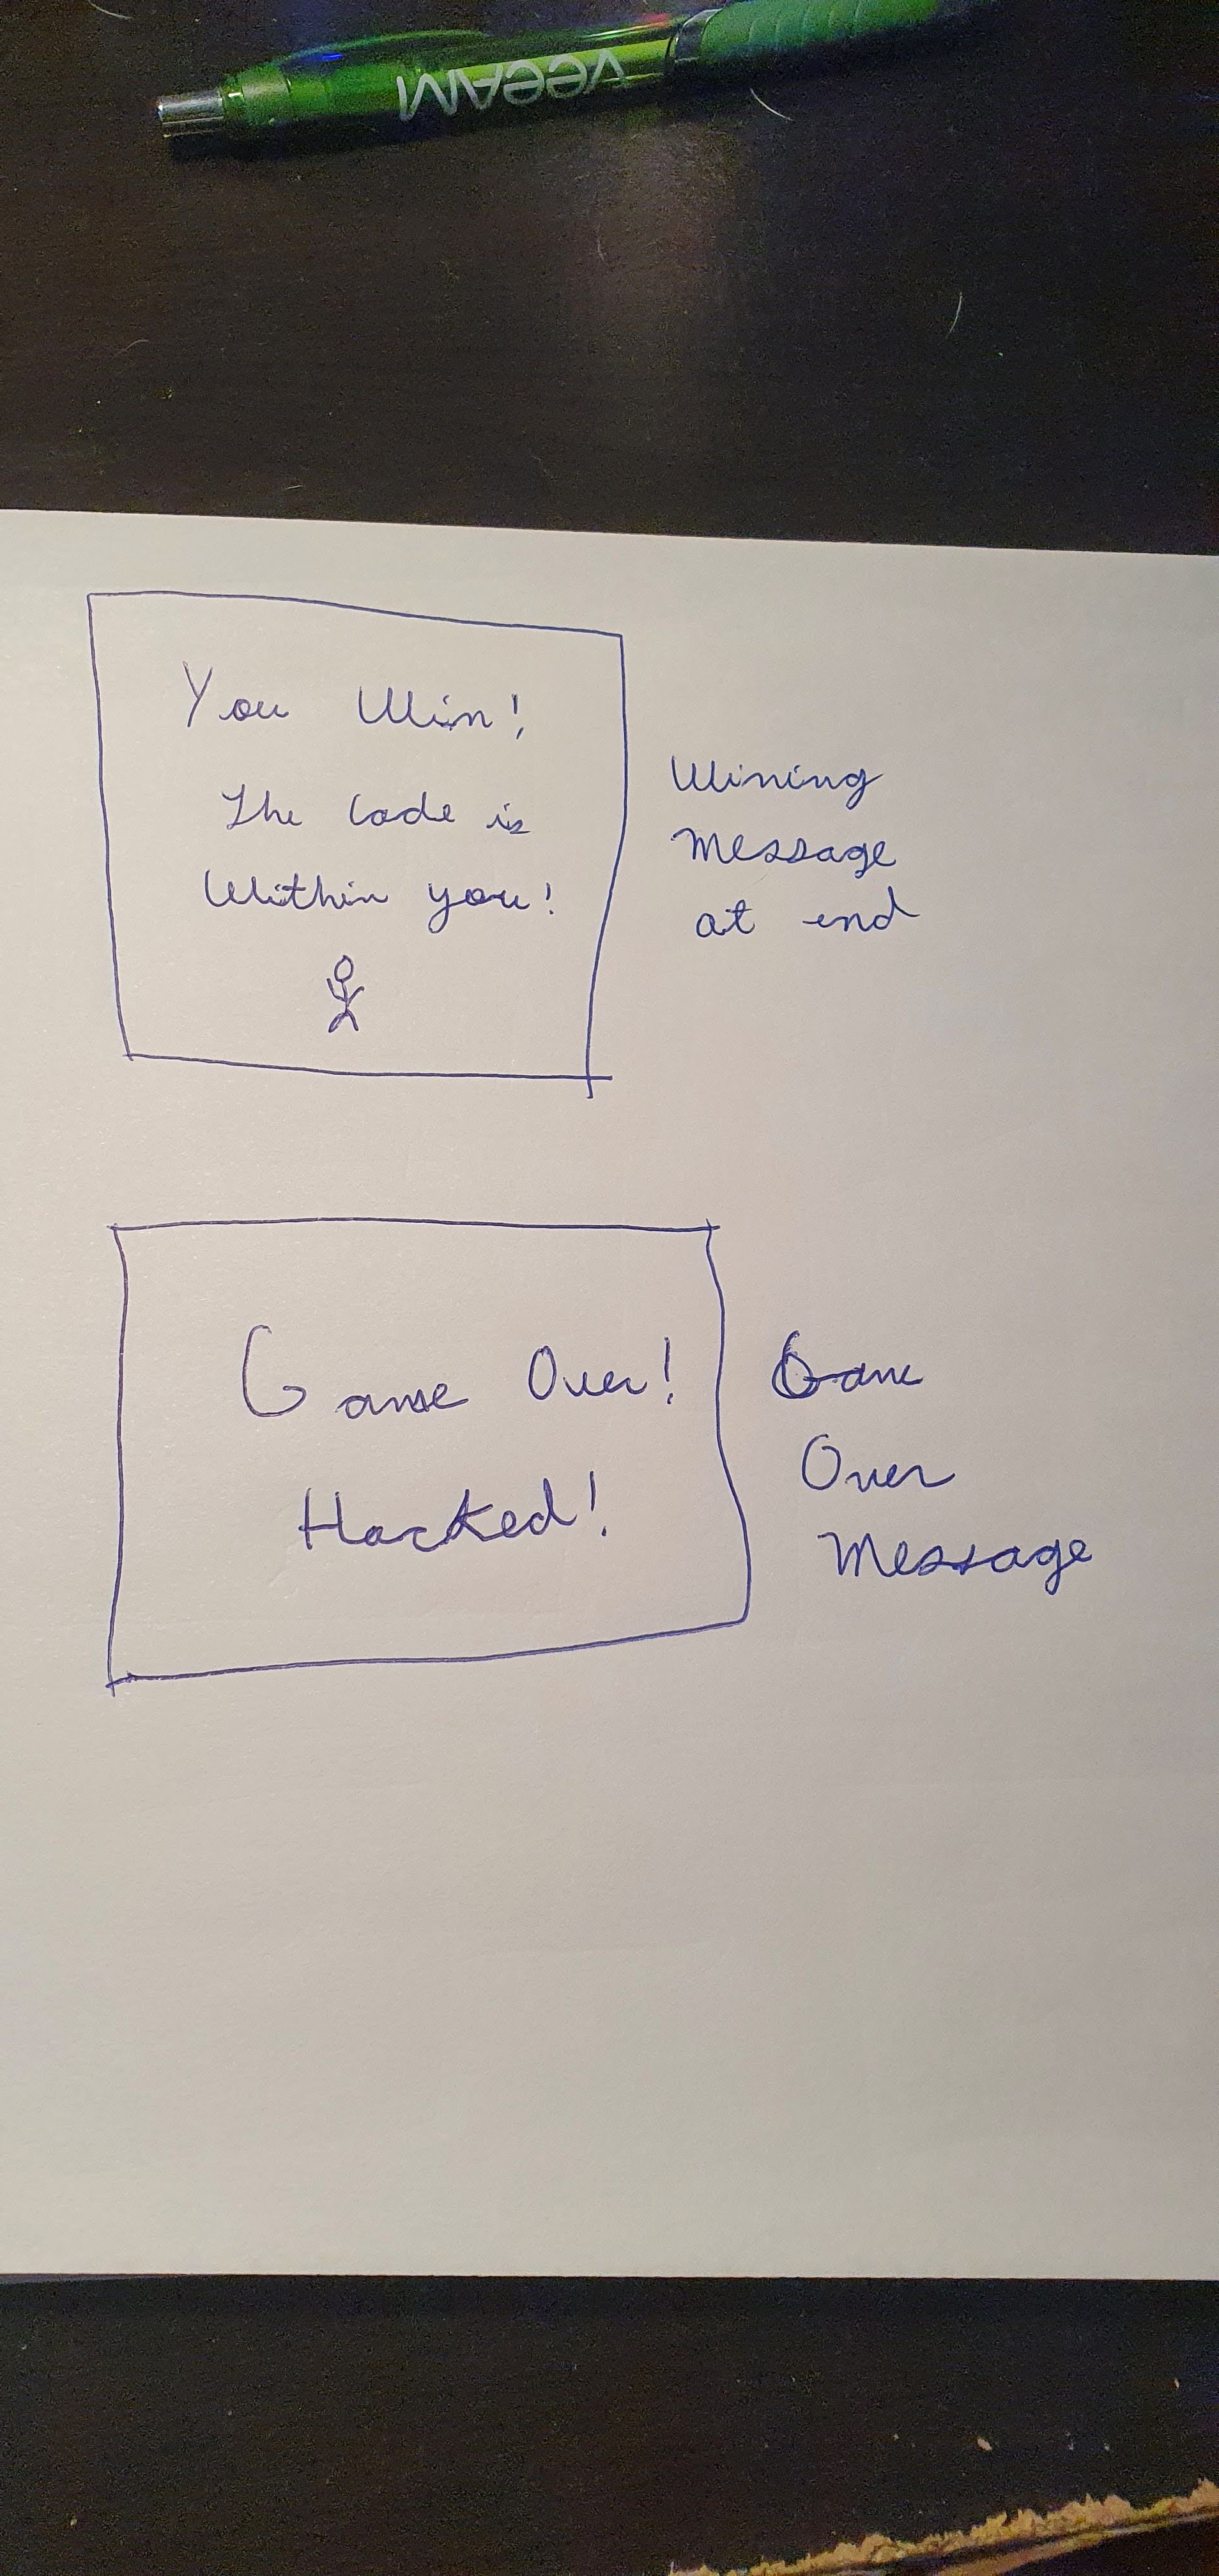 veeAM
You Win!
The Code is
Within you!
Wining
Message
at end
Game Over!
Hacked!
Game
Over
Message